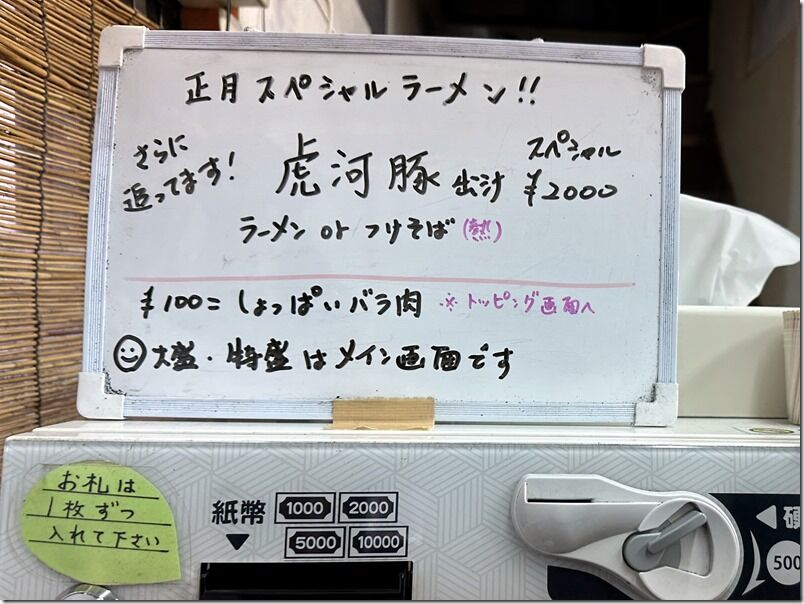 正月スペシャルラーメン!!
さらに
追ってます!
虎河豚 出汁
スペシャル
¥2000
ラーメン or つけそば(熱)
¥100=しょっぱいバラ肉 ※トッピング画面へ
大盛・特盛はメイン画面です
お札は
1枚ずつ
入れて下さい
紙幣
1000 2000
5000 10000
硬
500